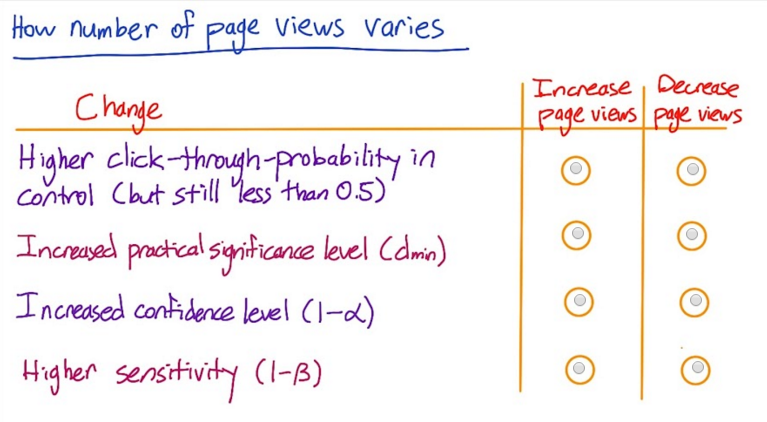 How number of page views varies
Change
Increase page views
Decrease page views
Higher click-through-probability in
control (but still less than 0.5)
Increased practical significance level (dmin)
Increased confidence level (1-α)
Higher sensitivity (1-β)